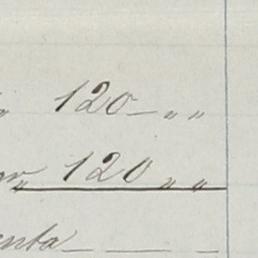 120 — „ „
120 „ „
enta — — —